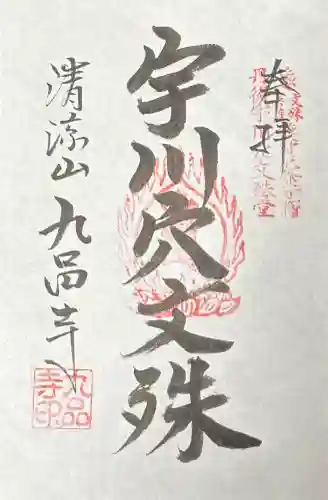 奉拝
宇川穴文殊
清涼山九品寺
九品
寺印